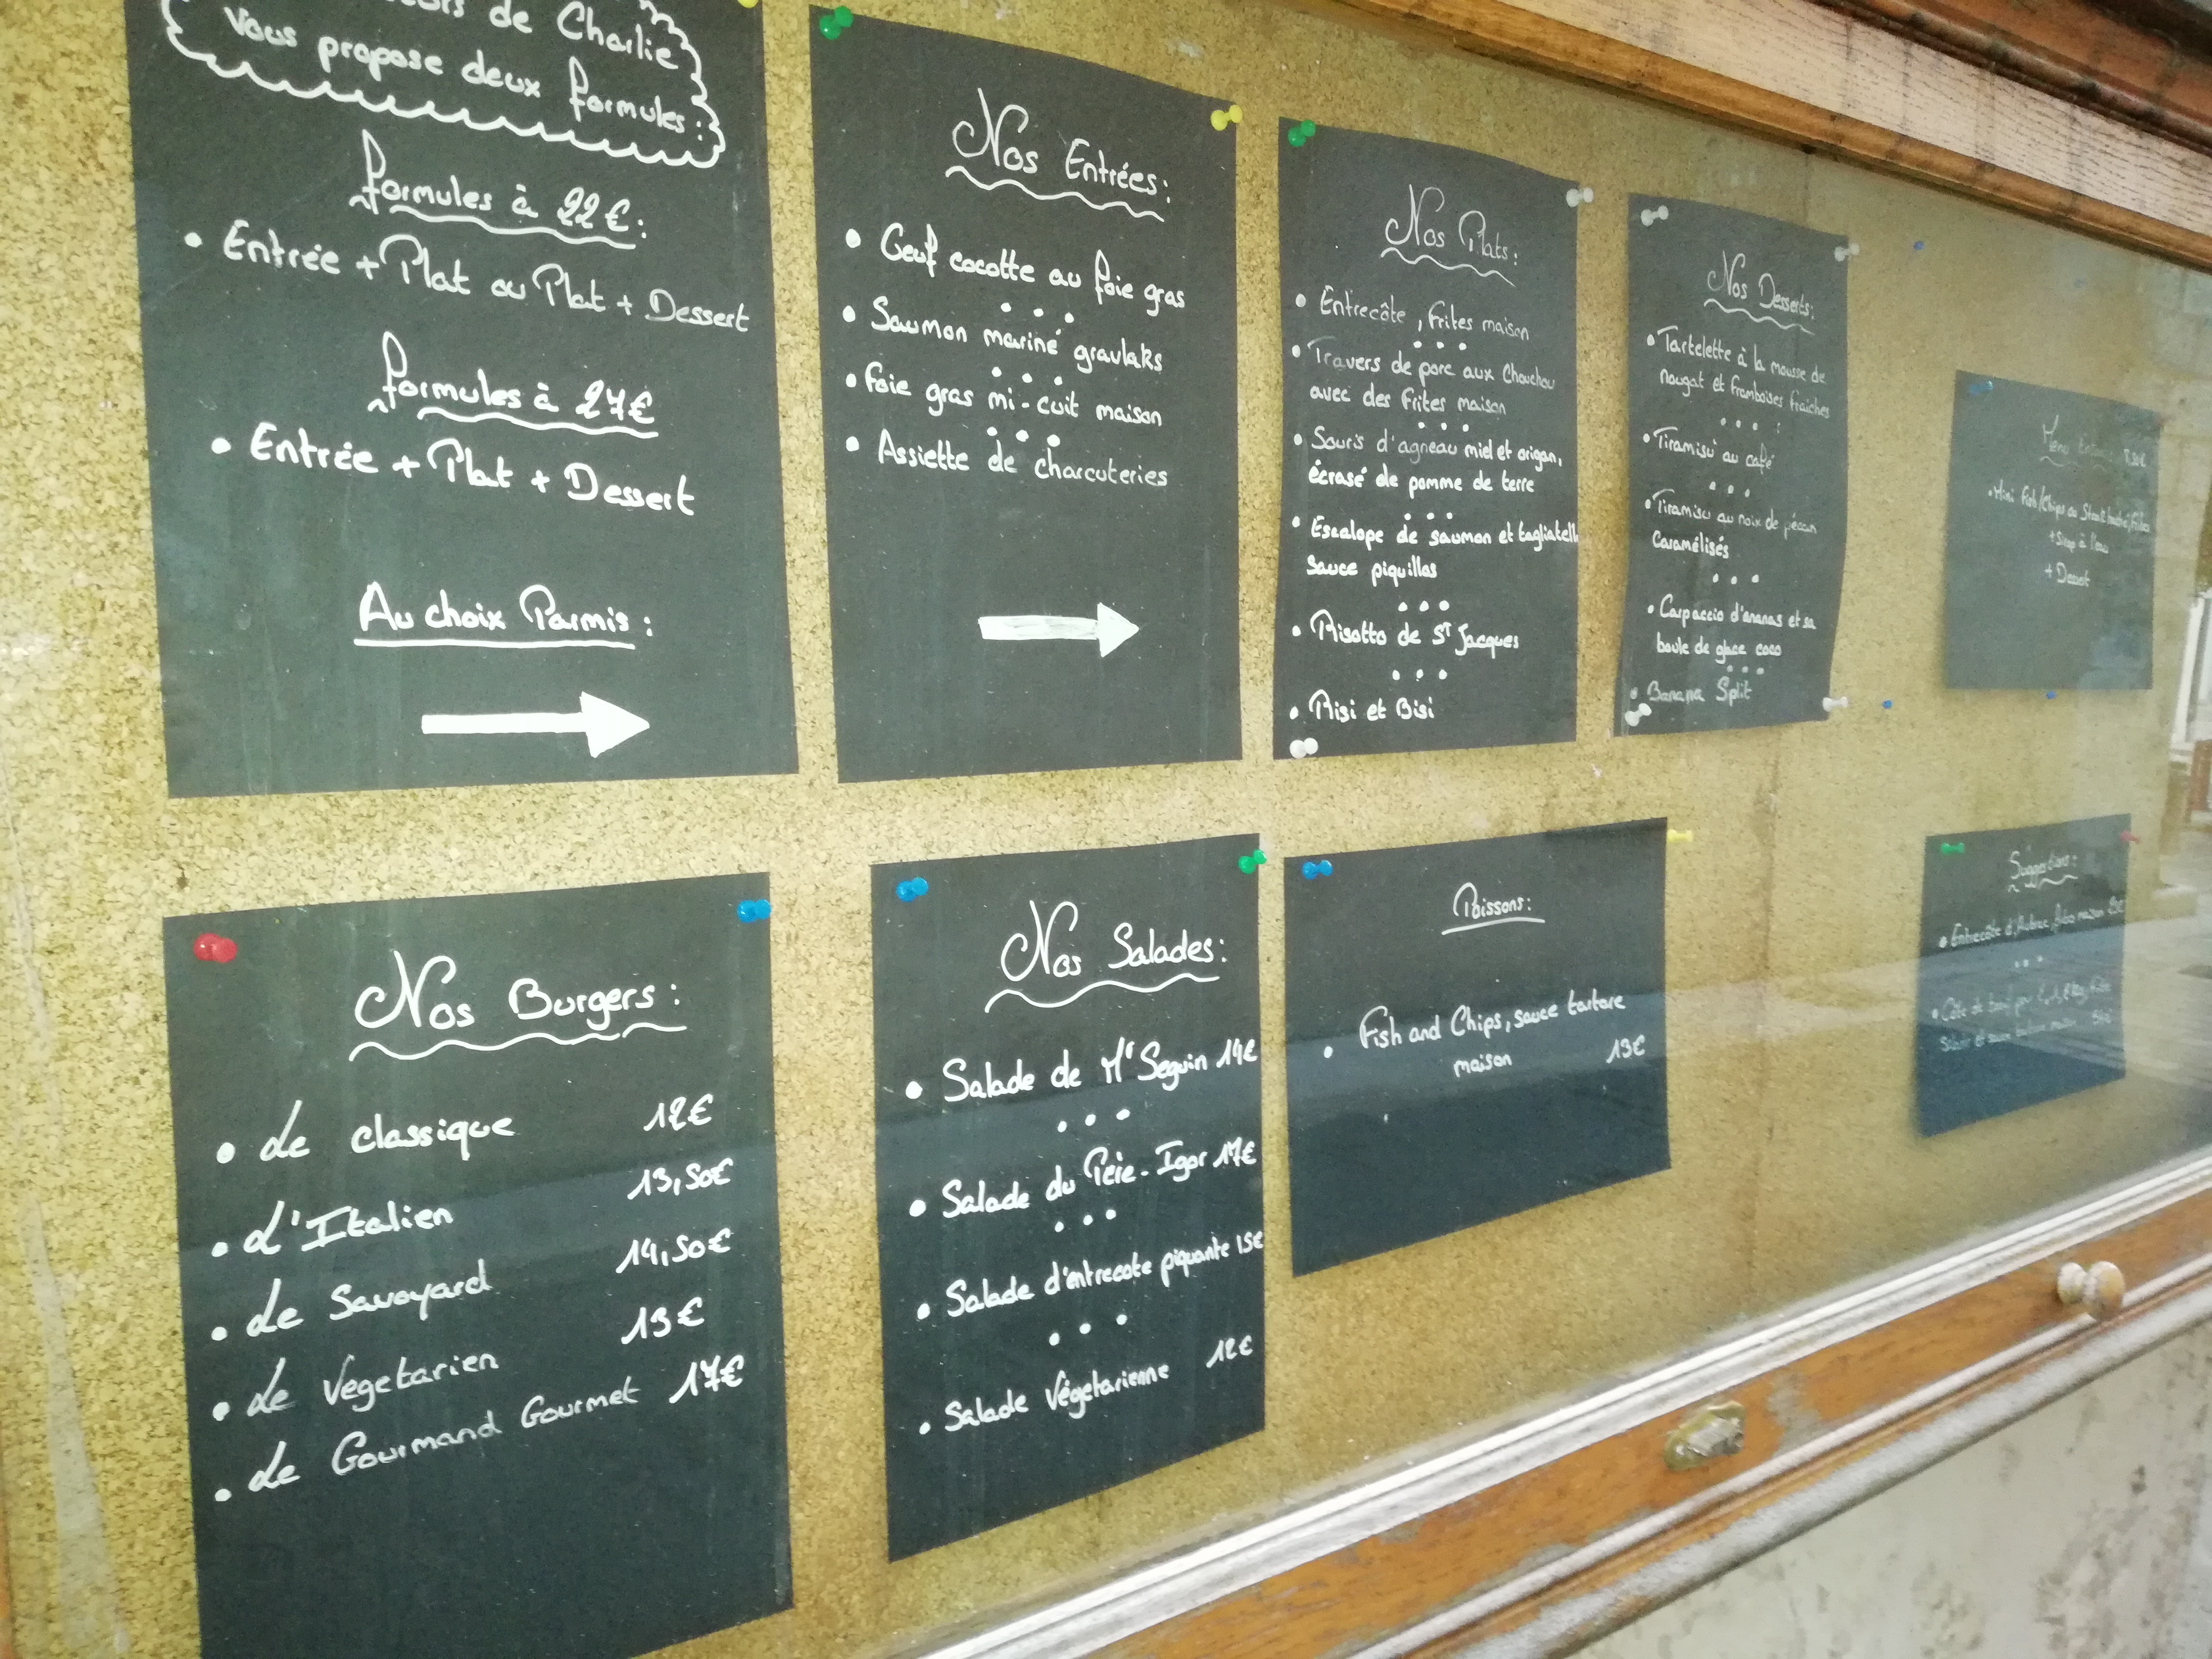 de Charlie
Vous propose deux formules:
formules à 22€:
• Entrée + Plat ou Plat + Dessert
formules à 27€
• Entrée + Plat + Dessert
Au choix Parmis:
Nos Entrées:
• Oeuf cocotte au foie gras
• Saumon mariné gravlaks
• foie gras mi-cuit maison
• Assiette de charcuteries
Nos Plats:
• Entrecôte, frites maison
• Travers de porc aux Chouchou
avec des frites maison
• Souris d'agneau miel et origan,
écrasé de pomme de terre
• Escalope de saumon et tagliatell
sauce piquillos
• Risotto de St Jacques
• Risi et Bisi
Nos Desserts:
• Tartelette à la mousse de
nougat et framboises fraiches
• Tiramisù au café
• Tiramisu au noix de pécan
Caramélisés
• Carpaccio d'ananas et sa
boule de glace coco
• Banana Split
Menu
• Mini Fish/Chips ou Steak haché, frites
+ Sirop à l'eau
+ Dessert
Nos Burgers:
• Le classique 12€
• L'Italien 13,50€
• Le Savoyard 14,50€
• Le Vegetarien 13€
• Le Gourmand Gourmet 17€
Nos Salades:
• Salade de Mr Seguin 14€
• Salade du Père-Igor 17€
• Salade d'entrecote piquante 15€
• Salade Végetarienne 12€
Poissons:
• Fish and Chips, sauce tartare
maison 13€
Suggestions:
• Entrecôte d'Aubrac, frites maison
• Côte de